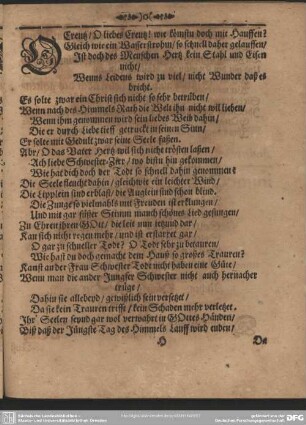 O Creutz/ O liebes Creutz! wie kömstu doch mit Hauffen?
Gleich wie ein Wasserstrohm/ so schnell daher gelauffen/
Ist doch des Menschen Hertz kein Stahl und Eisen
nicht/
Wenns Leidens wird zu viel/ nicht Wunder daß es
bricht.
Es solte zwar ein Christ sich nicht so sehr betrüben/
Wenn nach des Himmels Rath die Welt ihn nicht wil lieben/
Wenn ihm genommen wird sein liebes Weib dahin/
Die er durch Liebe tieff getruckt in seinen Sinn/
Er solte mit Gedult zwar seine Seele fassen.
Abr/ O das Vater Hertz wil sich nicht trösten lassen/
Ach liebe Schwester-Zier/ wo bistu hin gekommen/
Wie hat dich doch der Todt so schnell dahin genommen?
Die Seele fleucht dahin/ gleichwie ein leichter Wind/
Die Lipplein sind erblast/ die Äuglein sind schon blind.
Die Zunge so vielmahls mit Freuden ist erklungen/
Und mit gar süsser Stimm manch schönes Lied gesungen/
Zu Ehren ihrem GOtt/ die leit nun itzund dar/
Kan sich nicht regen mehr/ und ist erstarret gar/
O gar zu schneller Todt? O Todt sehr zu betauren/
Wie hast du doch gemacht dem Hauß so grosses Trauren?
Kanst an der Frau Schwester Todt nicht haben eine Güte/
Wenn man die ander Jungfer Schwester nicht auch hernacher
trüge/
Dahin sie allebeyd/ gewißlich sein versetzet/
Da sie kein Trauren trifft/ kein Schaden mehr verletzet.
Ihr Seelen seynd gar wol verwahrt in GOttes Händen/
Biß daß der Jüngste Tag des Himmels Lauff wird enden/
H
Da